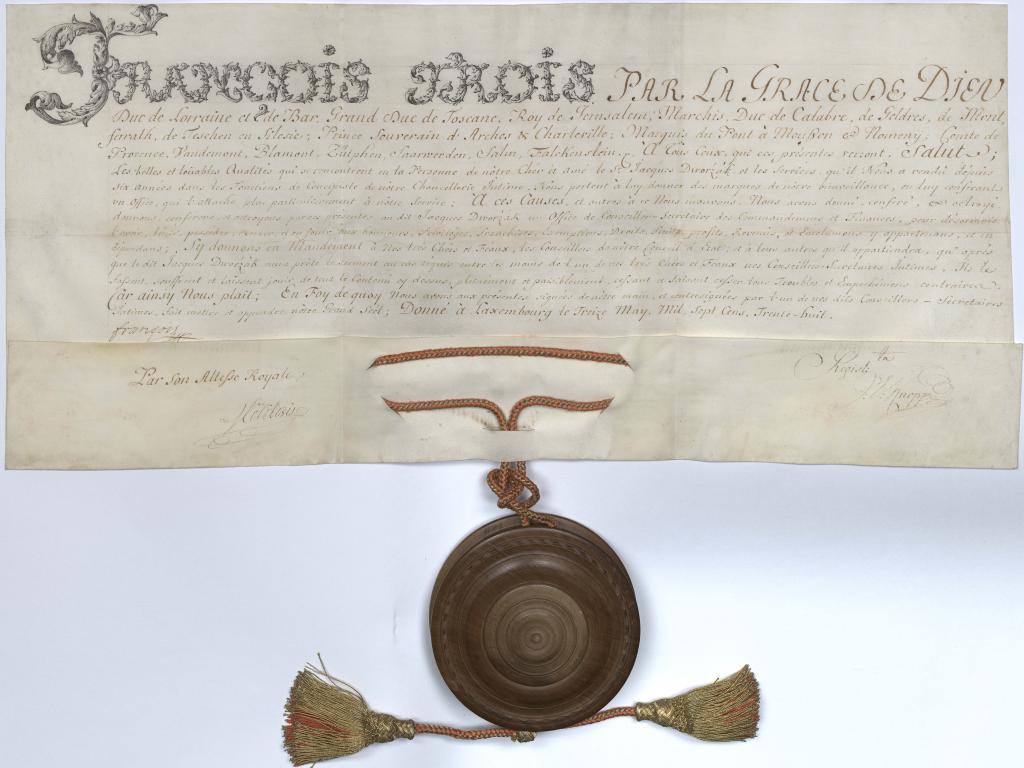 François Trois PAR LA GRACE DE DIEU
Duc de Lorraine et de Bar, Grand Duc de Toscane, Roy de Jerusalem, Marchis, Duc de Calabre, de Geldres, de Mont
ferrath, de Teschen en Silesie; Prince Souverain d'Arches & Charleville; Marquis du Pont à Mousson & Nomeny; Comte de
Provence, Vaudemont, Blamont, Zütphen, Saarwerden, Salm, Falckenstein; A tous Ceux, qui ces présentes verront, Salut;
Les belles et loüables Qualités qui se rencontrent en la Personne de nôtre Cher et amé le Sr. Jacques Dworžak et les Services, qu'il Nous a rendû depuis
six années dans les Fonctions de Concipiste de nôtre Chancellerie Intime, Nous portent à luy donner des marques de nôtre bienveillance, en luy conferant
un Office, qui l'attache plus particulierement à nôtre Service; A ces Causes, et autres à ce Nous mouvans. Nous avons donné, conferé, & octroyé
donnons, conferons, et octroyons par ces présentes au dit Jacques Dworžak un Office de Conseiller-Secretaire des Commandemens et Finances, pour désormais
l'avoir, tenir, posséder, exercer, et en jouir aux honneurs, Privileges, Franchises, Exemptions, Droits, fruits, profits, Revenûs, et Emolumens y appartenans, et en
dépendans; Sy donnons en Mandement à Nos trés Chers et Feaux, les Conseillers de nôtre Conseil d'Etat, et à tous autres qu'il appartiendra, qu'aprés
que le dit Jacques Dworžak aura prêté le serment au cas requis entre les mains de l'un de nos trés Chers et Feaux nos Conseillers-Secretaires Intimes, Ils le
fassent, souffrent et laissent jouir, de tout le Contenû cy dessus, pleinement et paisiblement, cessant et faisant cesser tous Troubles et Empechemens contraires.
Car ainsy Nous plait; En Foy de quoy Nous avons aux présentes signées de nôtre main, et contresignées par l'un de nos dits Conseillers - Secretaires
Intimes, fait mettre et appendre nôtre Grand Scêl; Donné à Laxembourg le Treize May, Mil, Sept Cens, Trente-huit.
françois
Par Son Altesse Royale
Regist<sup>ta</sup>